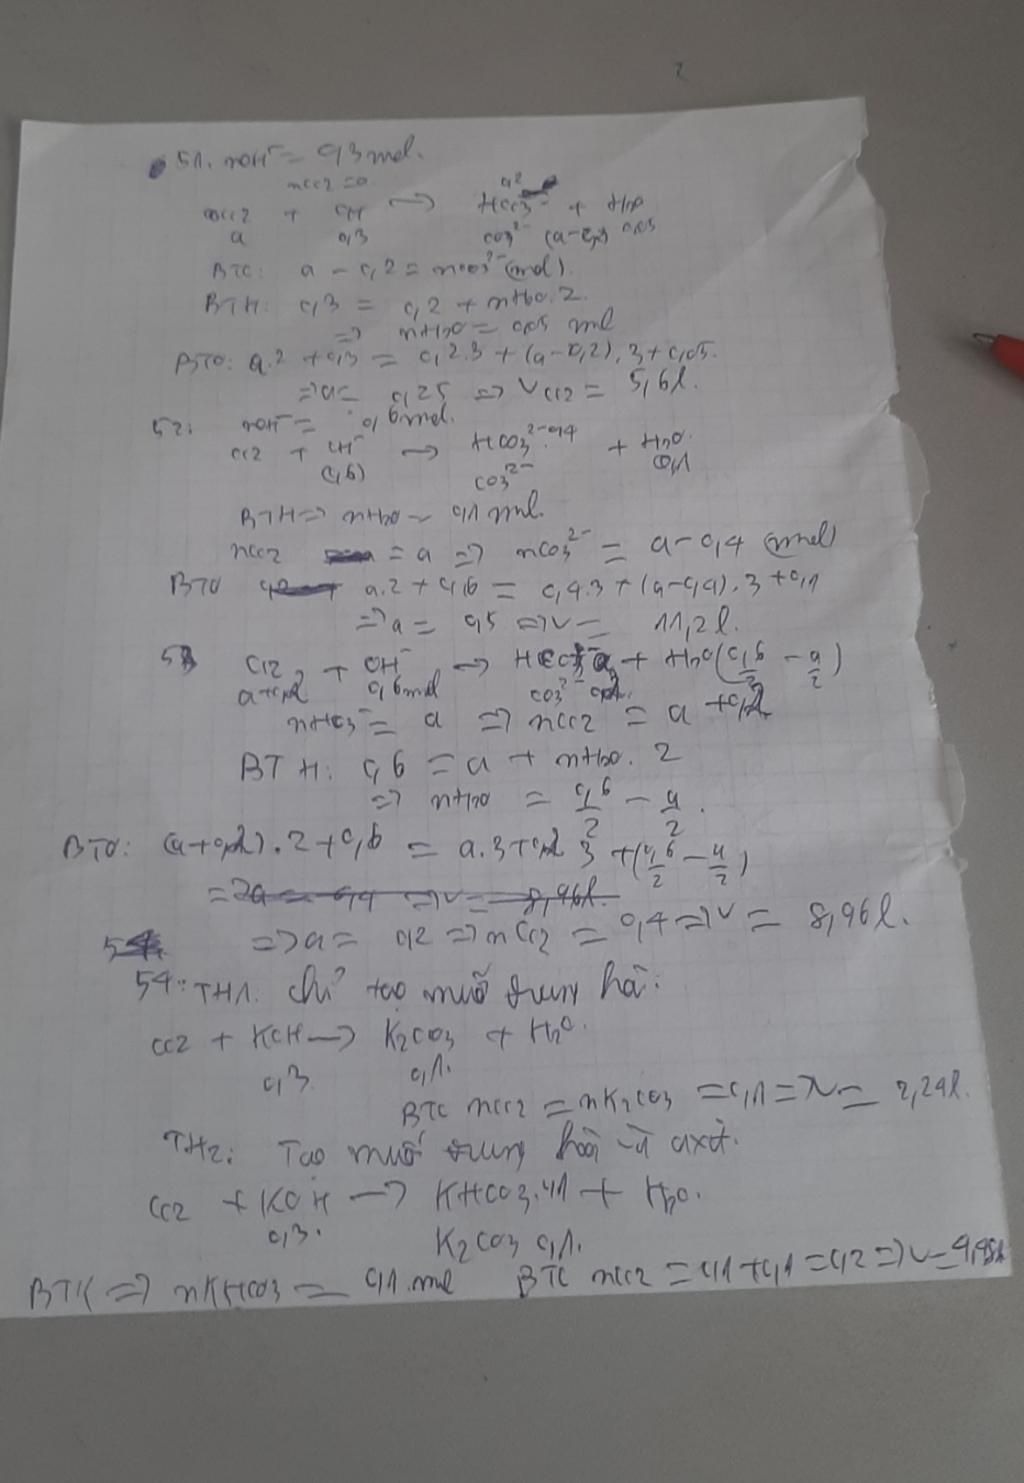 2
51. nOH⁻ = 0,3 mol.
nCO2 = a
CO2 + OH → HCO3⁻ + H2O
a 0,3 CO3²⁻ (a-0,2) 0,05
BTC: a - 0,2 = nCO3²⁻ (mol).
BTH: 0,3 = 0,2 + nH2O.2.
=> nH2O = 0,05 mol
BTO: a.2 + 0,3 = 0,2.3 + (a-0,2).3 + 0,05.
=> a = 0,25 => VCO2 = 5,6l.
52: nOH⁻ = 0,6 mol.
CO2 + OH⁻ → HCO3²⁻ 0,4 + H2O.
(0,6) CO3²⁻ 0,1
BTH => nH2O = 0,1 mol.
nCO2 = a => nCO3²⁻ = a - 0,4 (mol)
BTO a.2 + 0,6 = 0,4.3 + (a-0,4).3 + 0,1
=> a = 0,5 => V = 11,2l.
53 CO2 + OH⁻ → HCO3⁻ a + H2O (0,6/2 - a/2)
a+0,2 0,6mol CO3²⁻ 0,2.
nHCO3⁻ = a => nCO2 = a + 0,2
BTH: 0,6 = a + nH2O.2
=> nH2O = 0,6/2 - a/2.
BTO: (a+0,2).2 + 0,6 = a.3 + 0,2.3 + (0,6/2 - a/2)
=> a = 0,2 => nCO2 = 0,4 => V = 8,96l.
54: TH1: Chỉ tạo muối trung hòa:
CO2 + KOH → K2CO3 + H2O.
0,3. 0,1.
BTC nCO2 = nK2CO3 = 0,1 => V = 2,24l.
TH2: Tạo muối trung hòa và axit.
CO2 + KOH → KHCO3.0,1 + H2O.
0,3. K2CO3 0,1.
BTK => nKHCO3 = 0,1 mol BTC nCO2 = 0,1 + 0,1 = 0,2 => V = 4,48l